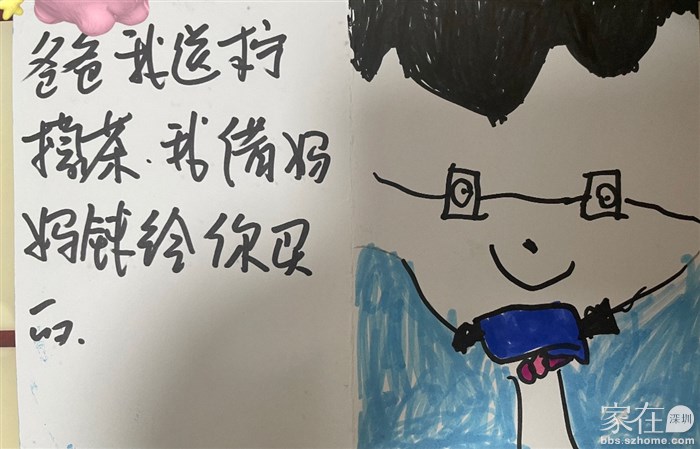 爸爸我送柠
檬茶.我借妈
妈钱给你买
的.
家在深圳
bbs.szhome.com